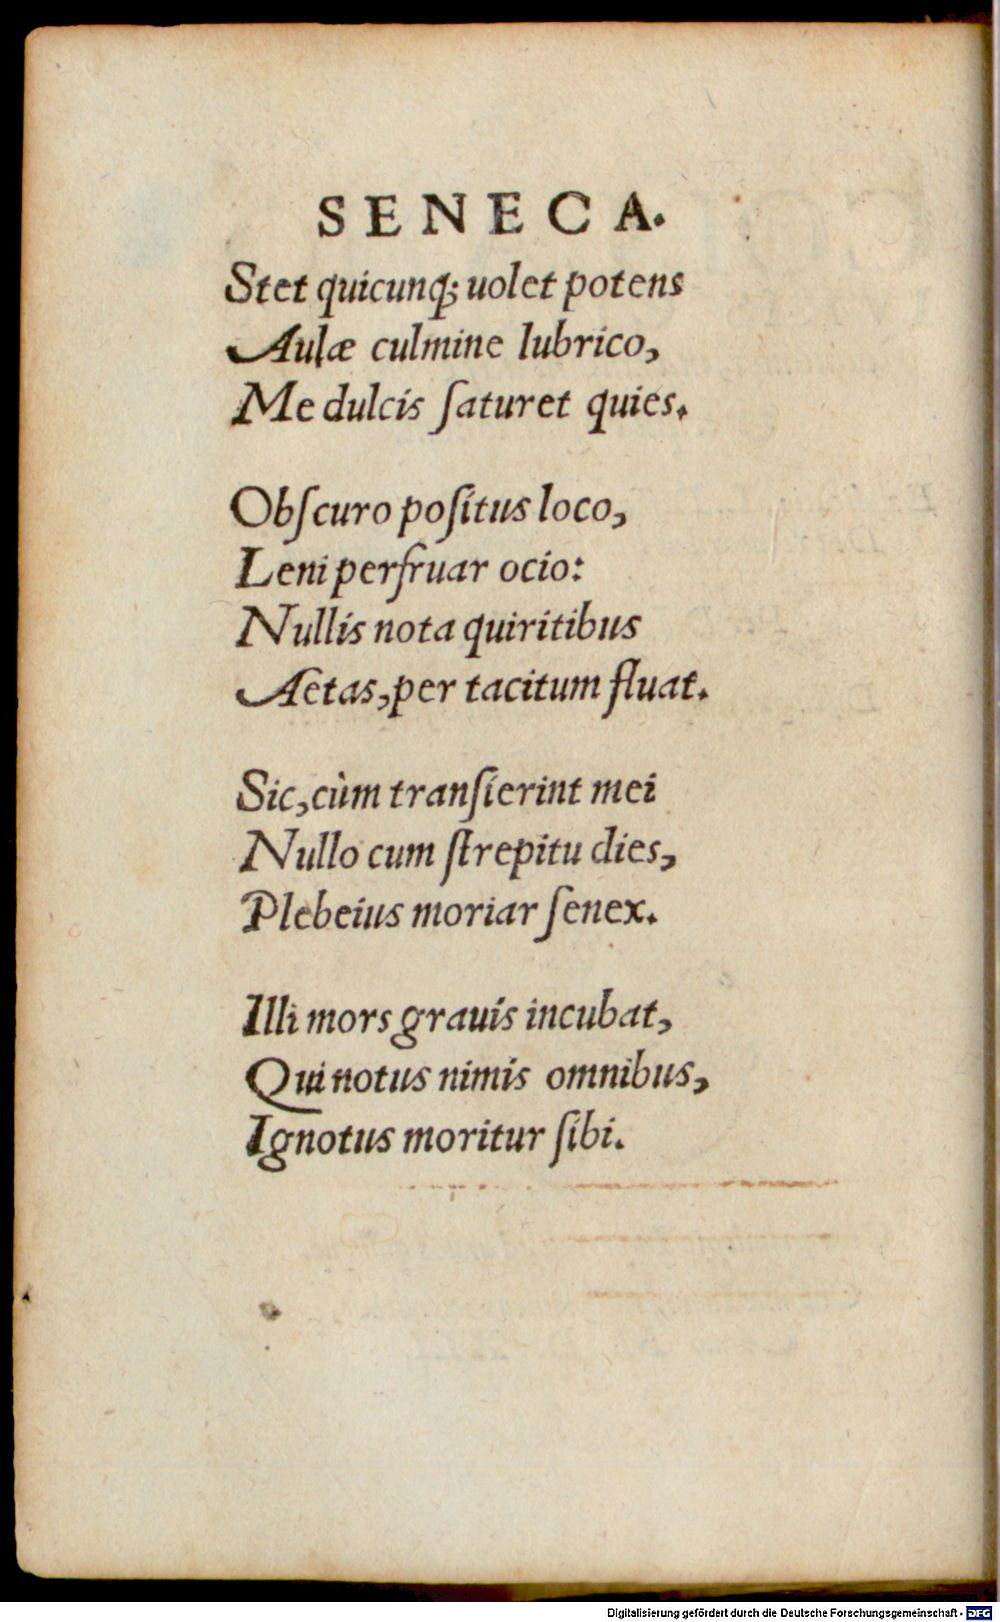 SENECA.
Stet quicunq; uolet potens
Aulæ culmine lubrico,
Me dulcis ſaturet quies.
Obſcuro poſitus loco,
Leni perfruar ocio:
Nullis nota quiritibus
Aetas, per tacitum fluat.
Sic, cùm tranſierint mei
Nullo cum ſtrepitu dies,
Plebeius moriar ſenex.
Illi mors grauis incubat,
Qui notus nimis omnibus,
Ignotus moritur ſibi.
Digitalisierung gefördert durch die Deutsche Forschungsgemeinschaft - DFG